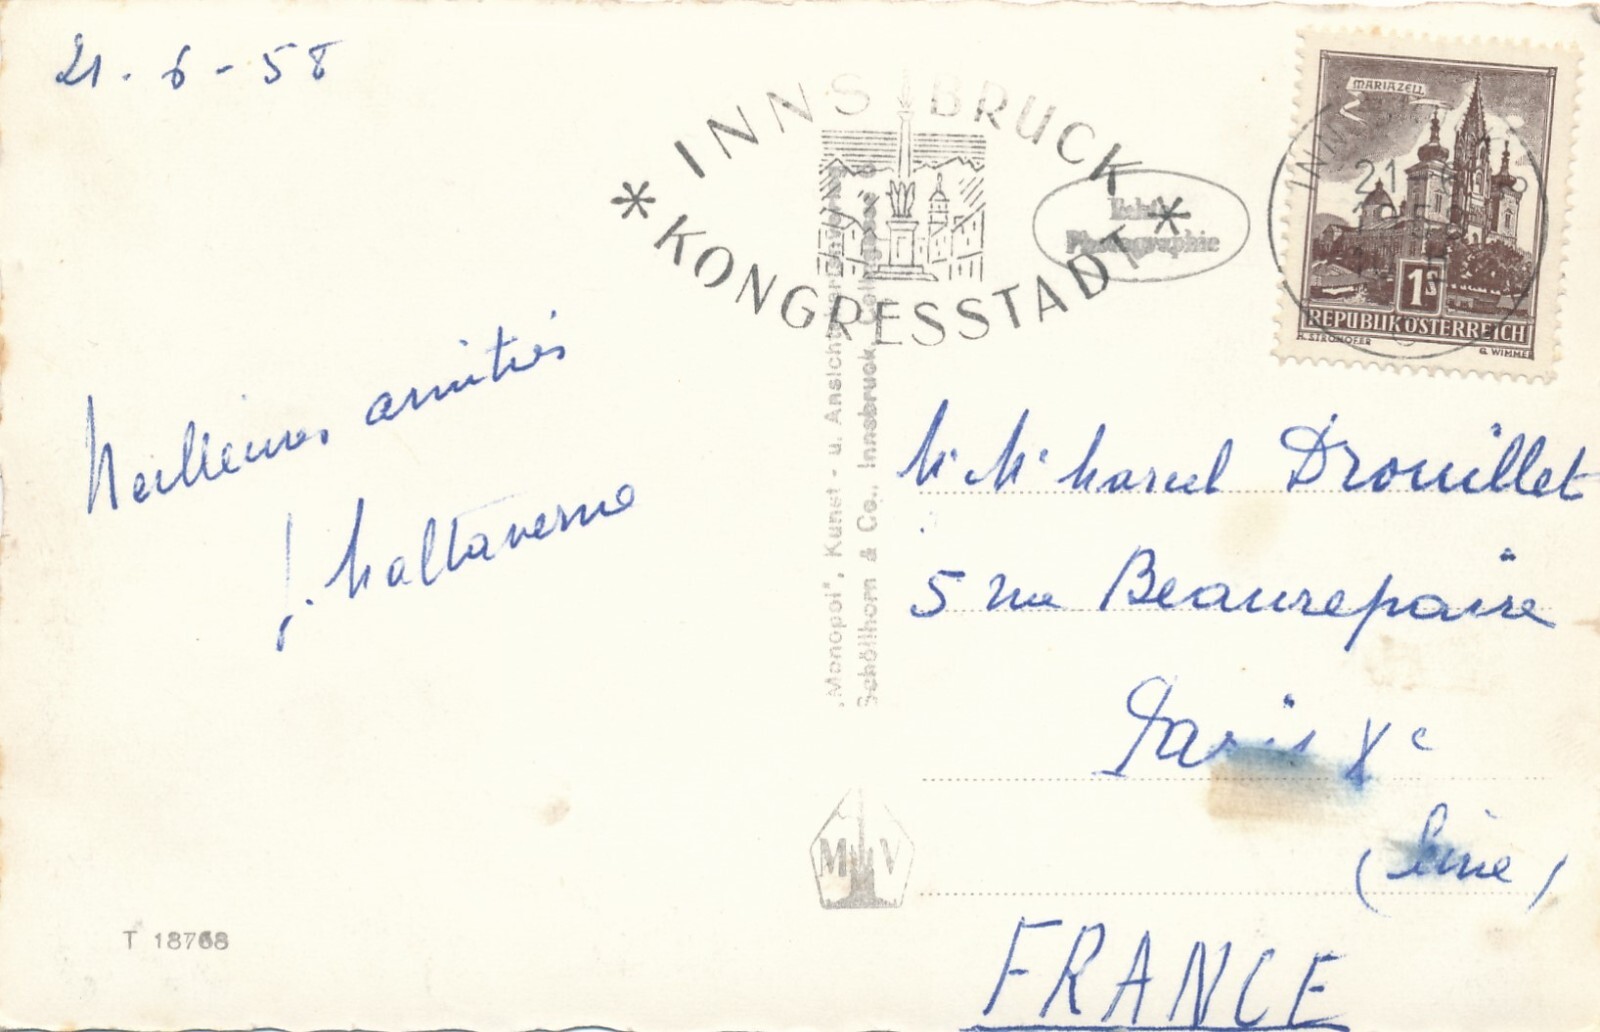 21 - 6 - 58
INNSBRUCK
* KONGRESSTADT *
Echte
Photographie
MARIAZELL
21
1S
REPUBLIK ÖSTERREICH
A. STROHOFER
G. WIMMER
Meilleures amitiés
J. Maltaverne
"Monopol", Kunst- u. Ansichtskartenverlag
Schöllhorn & Co., Innsbruck,
Mr Me Marcel Drouillet
5 rue Beaurepaire
Paris Xe
(Seine)
FRANCE
M V
T 18768